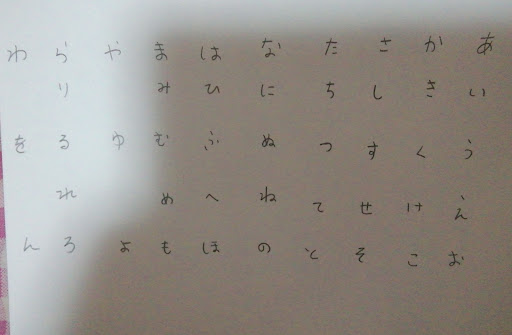 わ ら や ま は な た さ か あ
り み ひ に ち し き い
を る ゆ む ふ ぬ つ す く う
れ め へ ね て せ け え
ん ろ よ も ほ の と そ こ お